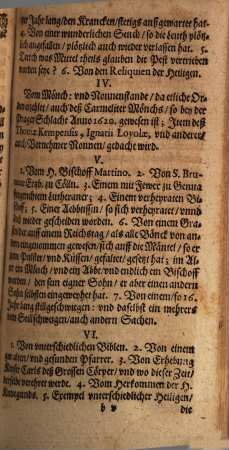 ze Jahr lang/den Krancken/stetigs auffgewartet hat.
4. Von einer wunderlichen Seuch/so die Leuth plötz-
lich angefallen/plötzlich auch wieder verlassen hat. 5.
Durch was Mittel theils glauben die Pest vertrieben
worden seye? 6. Von den Reliquien der Heiligen.
IV.
Vom Münch: vnd Nonnenstande/da etliche Or-
erzehlet/auch deß Carmeliter Mönchs/so bey der
Prager Schlacht Anno 1620. gewesen ist; Item deß
Thomæ Kempensis, Ignatii Loyolæ, vnd anderer
auch Vornehmer Nonnen/gedacht wird.
V.
1. Vom H. Bischoff Martino. 2. Von S. Bru-
Ertz. zu Cölln. 3. Einem mit Fewer zu Genua
Lutheraner; 4. Einem verheyraten Bi-
schoff; 5. Einer Aebbtissin/so sich verheyratet/vnnd
wider gescheiden worden. 6. Von einem Gra-
auff einem Reichstag/als alle Bäncke von an-
eingenommen gewesen/sich auff die Mäntel/so er
Polster/vnd Küssen/gefaltet/gesetzt hat; im Al-
ein Mönch/vnd ein Abbt/vnd endlich ein Bischoff
worden/den sein eigner Sohn/er aber einen andern
Sohn selbsten eingeweyhet hat. 7. Von einem/so 16.
Jahr lang stillgeschwiegen: vnd daselbst ein mehrers
vom Stillschweigen/auch andern Sachen.
VI.
1. Von vnterschiedlichen Biblen. 2. Von einem
vnd gesunden Pfarrer. 3. Von Erhebung
Keyser Carls deß Grossen Cörper/vnd wo dieser Zeit/
derselbe verehret werde. 4. Vom Herkommen der H.
Kunegunds. 5. Exempel vnterschiedlicher Heiligen/
b v die